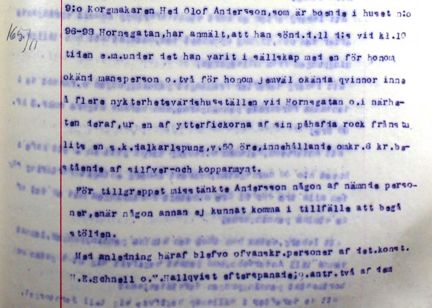 9:o Korgmakaren Hed Olof Andersson, som är boende i huset n:o
96-98 Hornsgatan, har anmält, att han sönd. d. 11 d:s vid kl. 10
tiden e.m. under det han varit i sällskap med en för honom
okänd mansperson o. två för honom jemväl okända qvinnor inne
i flere nykterhetsvärdshusställen vid Hornsgatan o. i närhe-
ten deraf, ur en af ytterfickorna af sin påhafda rock frånstu-
lits en s.k. dalkarlspung, v. 50 öre, innehållande omkr. 6 kr. be-
stående af silfver-och kopparmynt.
För tillgreppet misstänkte Andersson någon af nämnde perso-
ner, enär någon annan ej kunnat komma i tillfälle att begå
stölden.
Med anledning häraf blefvo ofvanskr. personer af det. konst.
W. E. Schnell o. W. Hallqvist efterspanade, o. antr. två af dem